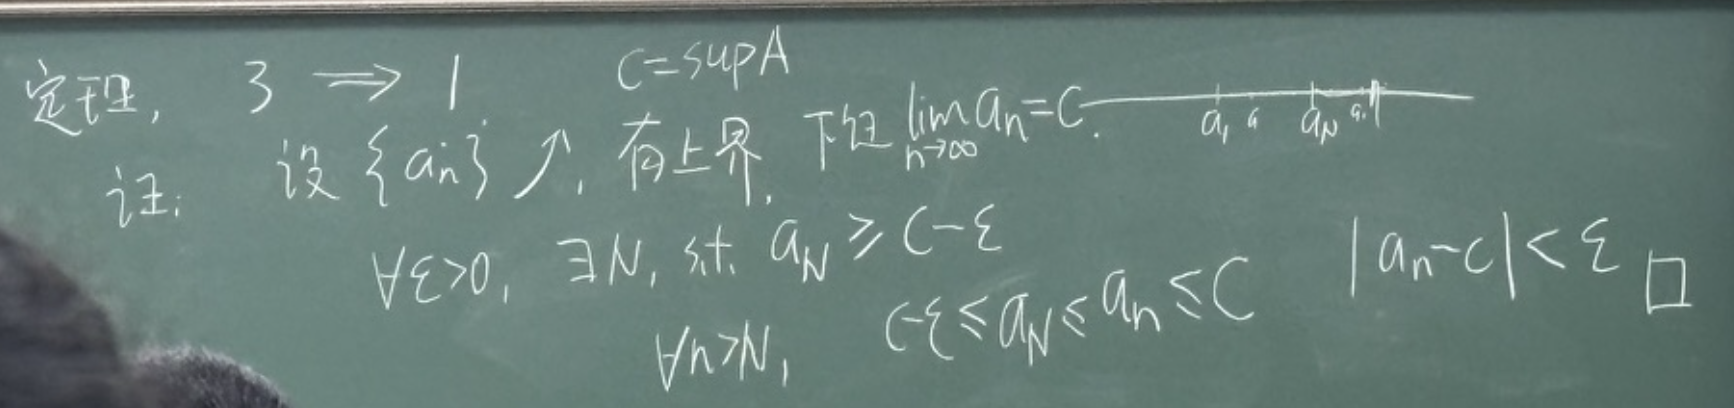 定理, 3 ⟹ 1
C=supA
证: 设 {an} ↗, 有上界, 下证 lim n→∞ an=C.
a1 aN
∀ε>0, ∃N, s.t. aN ≥ C-ε
∀n>N, C-ε ≤ aN ≤ an ≤ C |an-c|<ε □